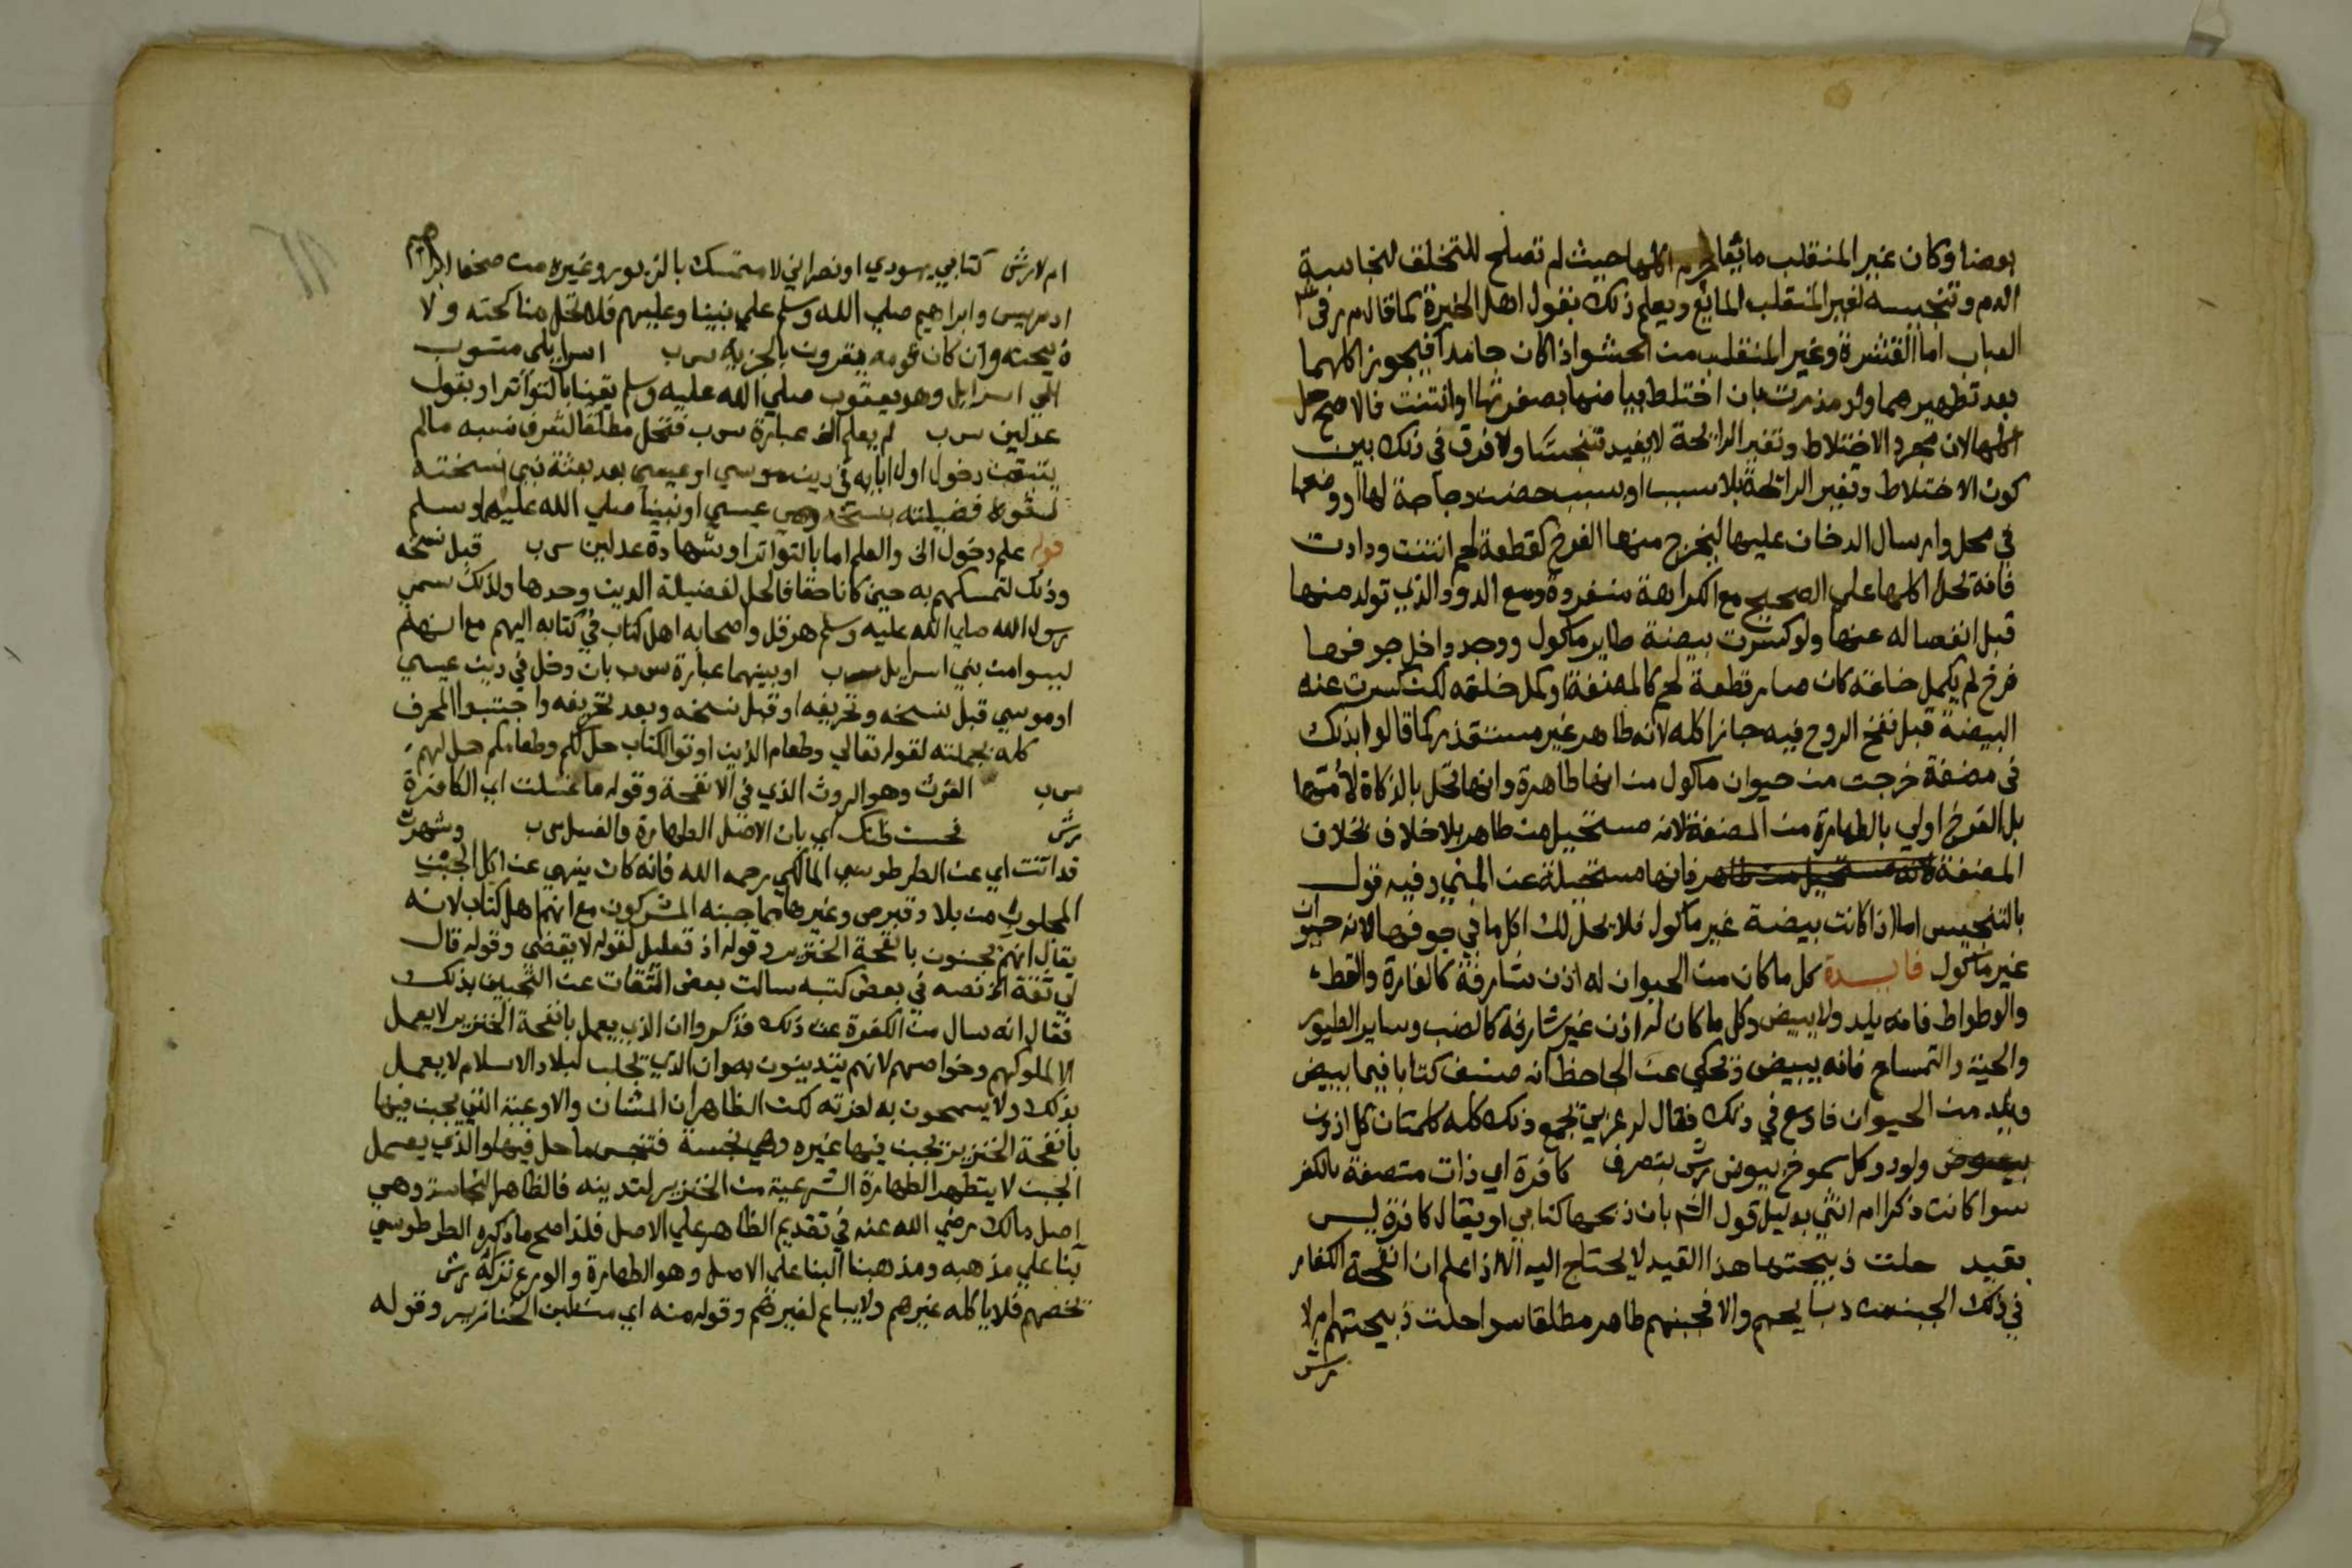 بعضا وكان غير المنقلب مائعا حرم اكلها حيث لم تصلح للتخلق لنجاسة
الدم وتنجيسه لغير المنقلب المائع ويعلم ذلك بقول اهل الخبرة كما قال م ر في
العباب اما القشرة وغير المنقلب من الحشو اذا كان جامدا فيجوز اكلهما
بعد تطهيرهما ولو مذرت بان اختلط بياضها بصفرتها او انتنت فالاصح حل
اكلها لان مجرد الاختلاط وتغير الرائحة لا يفيد تنجسا ولا فرق في ذلك بين
كون الاختلاط وتغير الرائحة بلا سبب او بسبب حضن دجاجة لها او وضعها
في محل وارسال الدخان عليها ليخرج منها الفرخ كقطعة لحم انتنت ودادت
فانه يحل اكلها على الصحيح مع الكراهة منفردة ومع الدود الذي تولد منها
قبل انفصاله عنها ولو كسرت بيضة طاير ماكول ووجد داخل جوفها
فرخ لم يكمل خلقه كان صار قطعة لحم كالمضغة او كمل خلقه لكن كسرت عنه
البيضة قبل نفخ الروح فيه جاز اكله لانه طاهر غير مستقذر كما قالوا بذلك
في مضغة خرجت من حيوان ماكول من انها طاهرة وانها تحل بالذكاة لامها
بل الفرخ اولي بالطهارة من المضغة لانه مستحيل من طاهر بلا خلاف بخلاف
المضغة لانه مستحيل من طاهر فانها مستحيلة عن المني وفيه قول
بالتنجيس اما اذا كانت بيضة غير ماكول فلا يحل لك اكل ما في جوفها لانه حيوان
غير ماكول فايدة كل ما كان من الحيوان له اذن شارفة كالفارة والقط
والوطواط فانه يلد ولا يبيض وكل ما كان له اذن غير شارفة كالضب وساير الطيور
والحية والتمساح فانه يبيض وحكي عن الجاحظ انه صنف كتابا فيما يبيض
ويلد من الحيوان فاوسع في ذلك فقال له عربي يجمع ذلك كله كلمتان كل اذون
ولود وكل صموخ بيوض رش بتصرف كافرة اي ذات متصفة بالكفر
سوا كانت ذكرا ام انثي بدليل قول الشم بان ذبحها كتابي او يقال كافرة ليس
بقيد حلت ذبيحتها هذا القيد لا يحتاج اليه الا اذا علم ان انفحة الكفار
في ذلك الجبن من ذبايحهم والا فجبنهم طاهر مطلقا سوا حلت ذبيحتهم ام لا
رش
ام لا رش كتابي يهودي او نصراني لا متمسك بالزبور وغيره من صحف ابراهيم
ادريس وابراهيم صلي الله وسلم علي نبينا وعليهم فلا تحل مناكحته ولا
ذبيحته وان كان قومه يقرون بالجزية س ب اسرايلي منسوب
الي اسرايل وهو يعقوب صلي الله عليه وسلم يقينا بالتواتر او بقول
عدلين س ب لم يعلم الخ عبارة س ب فتحل مطلقا لشرف نسبه ما لم
يتيقن دخول اول ابايه في دين موسي او عيسي بعد بعثة نبي نسخته
لسقوط فضيلته بنسخه وهي عيسي او نبينا صلي الله عليهما وسلم
قوله علم دخول الخ والعلم اما بالتواتر او شهادة عدلين س ب قبل نسخه
وذلك لتمسكهم به حين كان حقا فالحل لفضيلة الدين وحدها ولذلك سمي
رسول الله صلي الله عليه وسلم هرقل واصحابه اهل كتاب في كتابه اليهم مع انهم
ليسوا من بني اسرايل س ب او بينهما عبارة س ب بان دخل في دين عيسي
او موسي قبل نسخه وتحريفه او قبل نسخه وبعد تحريفه واجتنبوا المحرف
كله بجملته لقوله تعالي وطعام الذين اوتوا الكتاب حل لكم وطعامكم حل لهم
س ب الفرث وهو الروث الذي في الانفحة وقوله ما غسلت اي الكافرة
رش تحسن ظنك اي بان الاصل الطهارة والغسل س ب وشهرة
قد اتت اي عن الطرطوسي المالكي رحمه الله فانه كان ينهي عن اكل الجبن
المجلوب من بلاد قبرص وغيرها مما جبنه المشركون مع انهم اهل كتاب لانه
يقال انهم يجبنون بانفحة الخنزير وقوله اذ تعليل لقوله لا يقضي وقوله قال
لي ثقة الخ نصه في بعض كتبه سالت بعض الثقات عن التجبين بذلك
فقال انه سال من الكفرة عن ذلك فذكروا ان الذي يعمل بانفحة الخنزير لا يعمل
الا لملوكهم وخواصهم لانهم يتدينون به وان الذي يجلب لبلاد الاسلام لا يعمل
بذلك ولا يسمحون به لعزته لكن الظاهر ان المشان والاوعية التي يجبن فيها
بانفحة الخنزير يجبن فيها غيره وهي نجسة فتنجس ما حل فيها والذي يعمل
الجبن لا يتطهر الطهارة الشرعية من الخنزير لتدينه فالظاهر النجاسة وهي
اصل مالك رضي الله عنه في تقديم الظاهر علي الاصل فلذا صح ما ذكره الطرطوسي
بنا علي مذهبه ومذهبنا البنا علي الاصل وهو الطهارة والورع تركه رش
تخصهم فلا ياكله غيرهم ولا يباع لغيرهم وقوله منه اي من لبن الخنازير وقوله